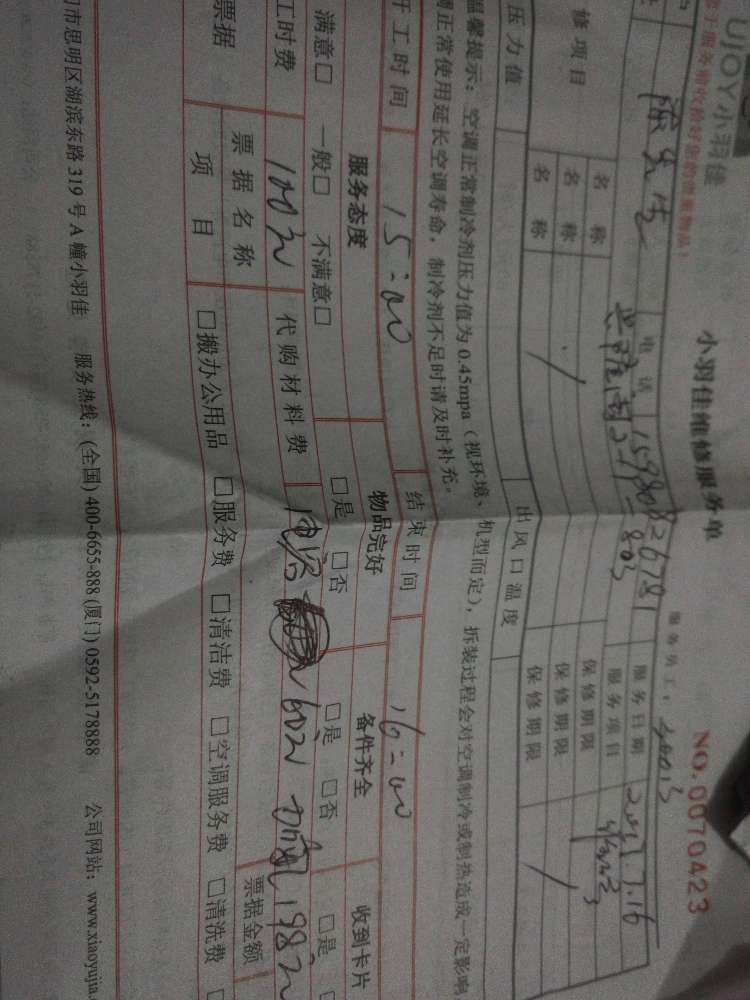 UJOY小羽佳
小羽佳维修服务单
NO.0070423
您于服务前收拾好您的贵重物品！
服务员工：
电话 15980826781 服务日期
803 服务项目
修项目 名称 保修期限
名称 保修期限
名称 / 保修期限 /
压力值 出风口温度
温馨提示：空调正常制冷剂压力值为0.45mpa（视环境、机型而定），拆装过程会对空调制冷或制热造成一定影响
调正常使用延长空调寿命，制冷剂不足时请及时补充。
开工时间 15:00 结束时间 16:00
服务态度 物品完好 备件齐全 收到卡片
满意□ 一般□ 不满意□ □是 □否 □是 □否 □是
工时费 100元 代购材料费 60元 198元
票据 票据名称 票据金额
项目 □搬办公用品 □服务费 □清洁费 □空调服务费 □清洗费
门市思明区湖滨东路319号A幢小羽佳 服务热线：(全国) 400-6655-888 (厦门) 0592-5178888 公司网站：www.xiaoyujia.